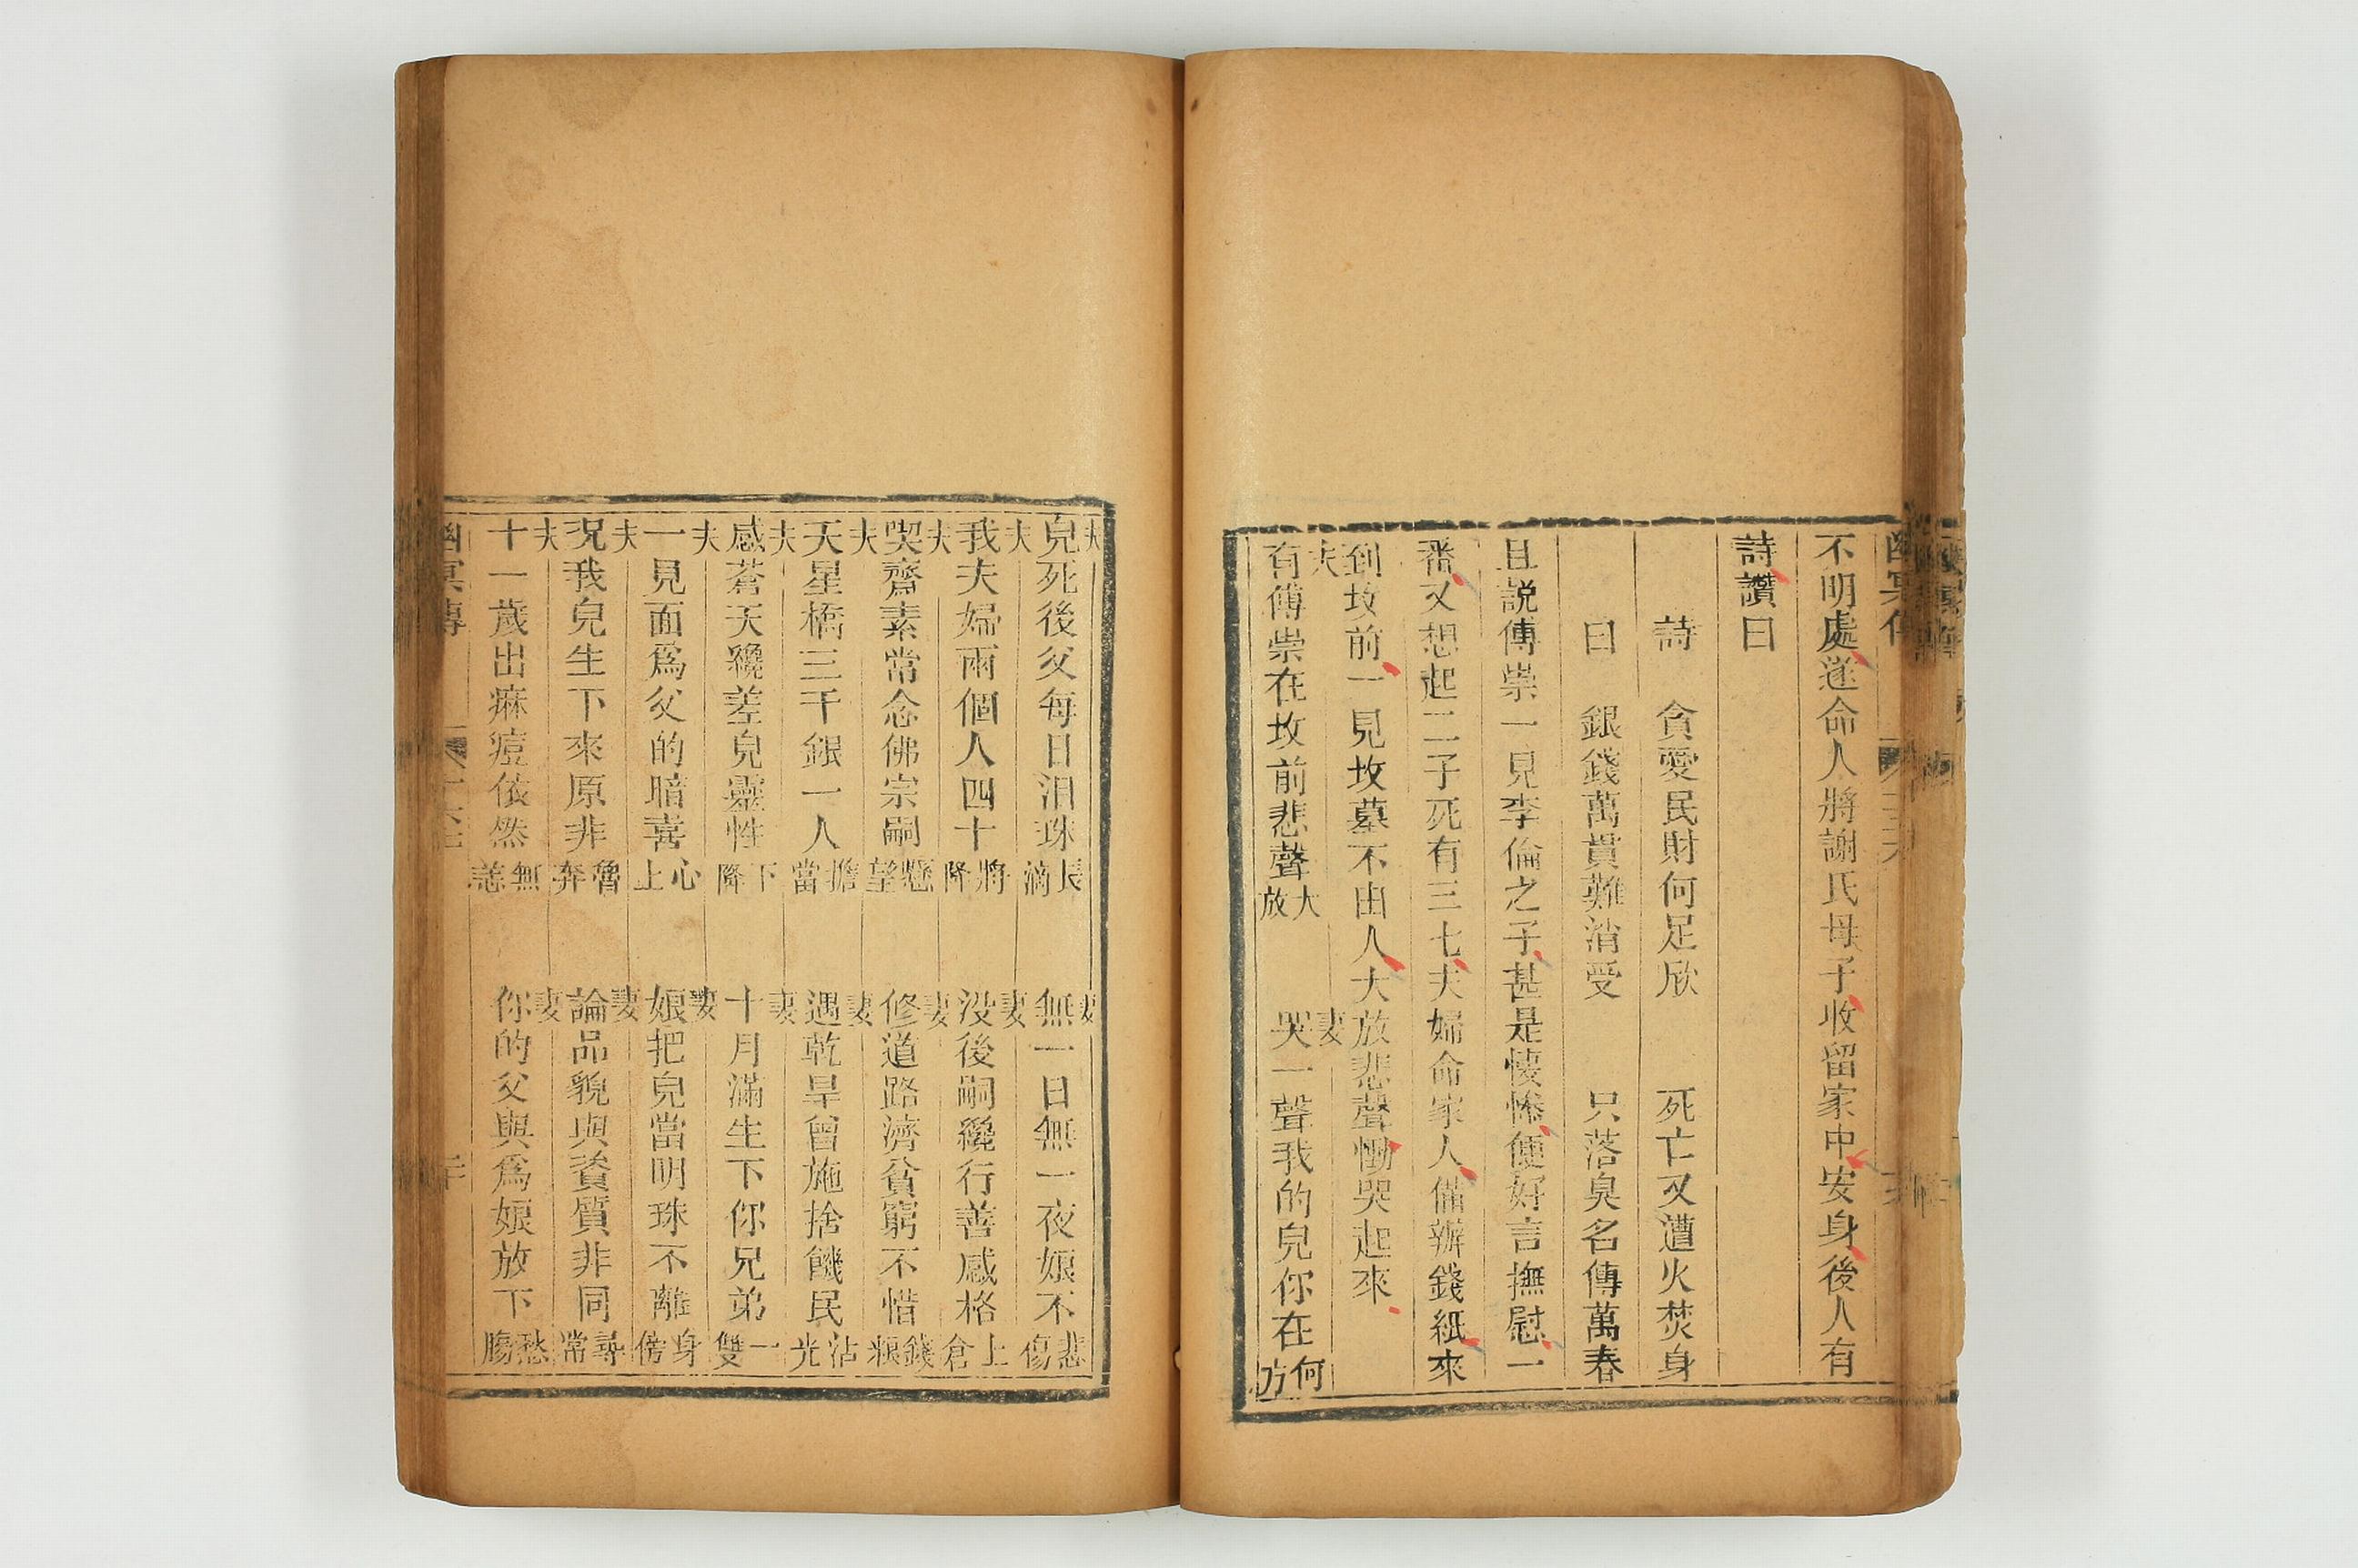 幽冥傳
不明處遂命人將謝氏母子收留家中安身後人有
詩讚曰
詩 貪愛民財何足欣 死亡又遭火焚身
曰 銀錢萬貫難消受 只落臭名傳萬春
且説傳崇一見李倫之子甚是悽慘便好言撫慰一
番又想起二子死有三七夫婦命家人備辦錢紙來
到坟前一見坟墓不由人大放悲聲慟哭起來
夫有傅崇在坟前悲聲大放 妻哭一聲我的兒你在何方
夫兒死後父每日泪珠長滴 妻無一日無一夜娘不悲傷
夫我夫婦兩個人四十將降 妻没後嗣纔行善感格上倉
夫喫齋素常念佛宗嗣懸望 妻修道路濟貧窮不惜錢粮
夫天星橋三千銀一人擔當 妻遇乾旱曾施捨饑民沾光
夫感蒼天纔差兒靈性下降 妻十月滿生下你兄弟一雙
夫一見面爲父的暗喜心上 妻娘把兒當明珠不離身傍
夫况我兒生下來原非魯莽 妻論品貌與資質非同尋常
夫十一歲出痳痘依然無恙 妻你的父與爲娘放下愁腸
幽冥傳